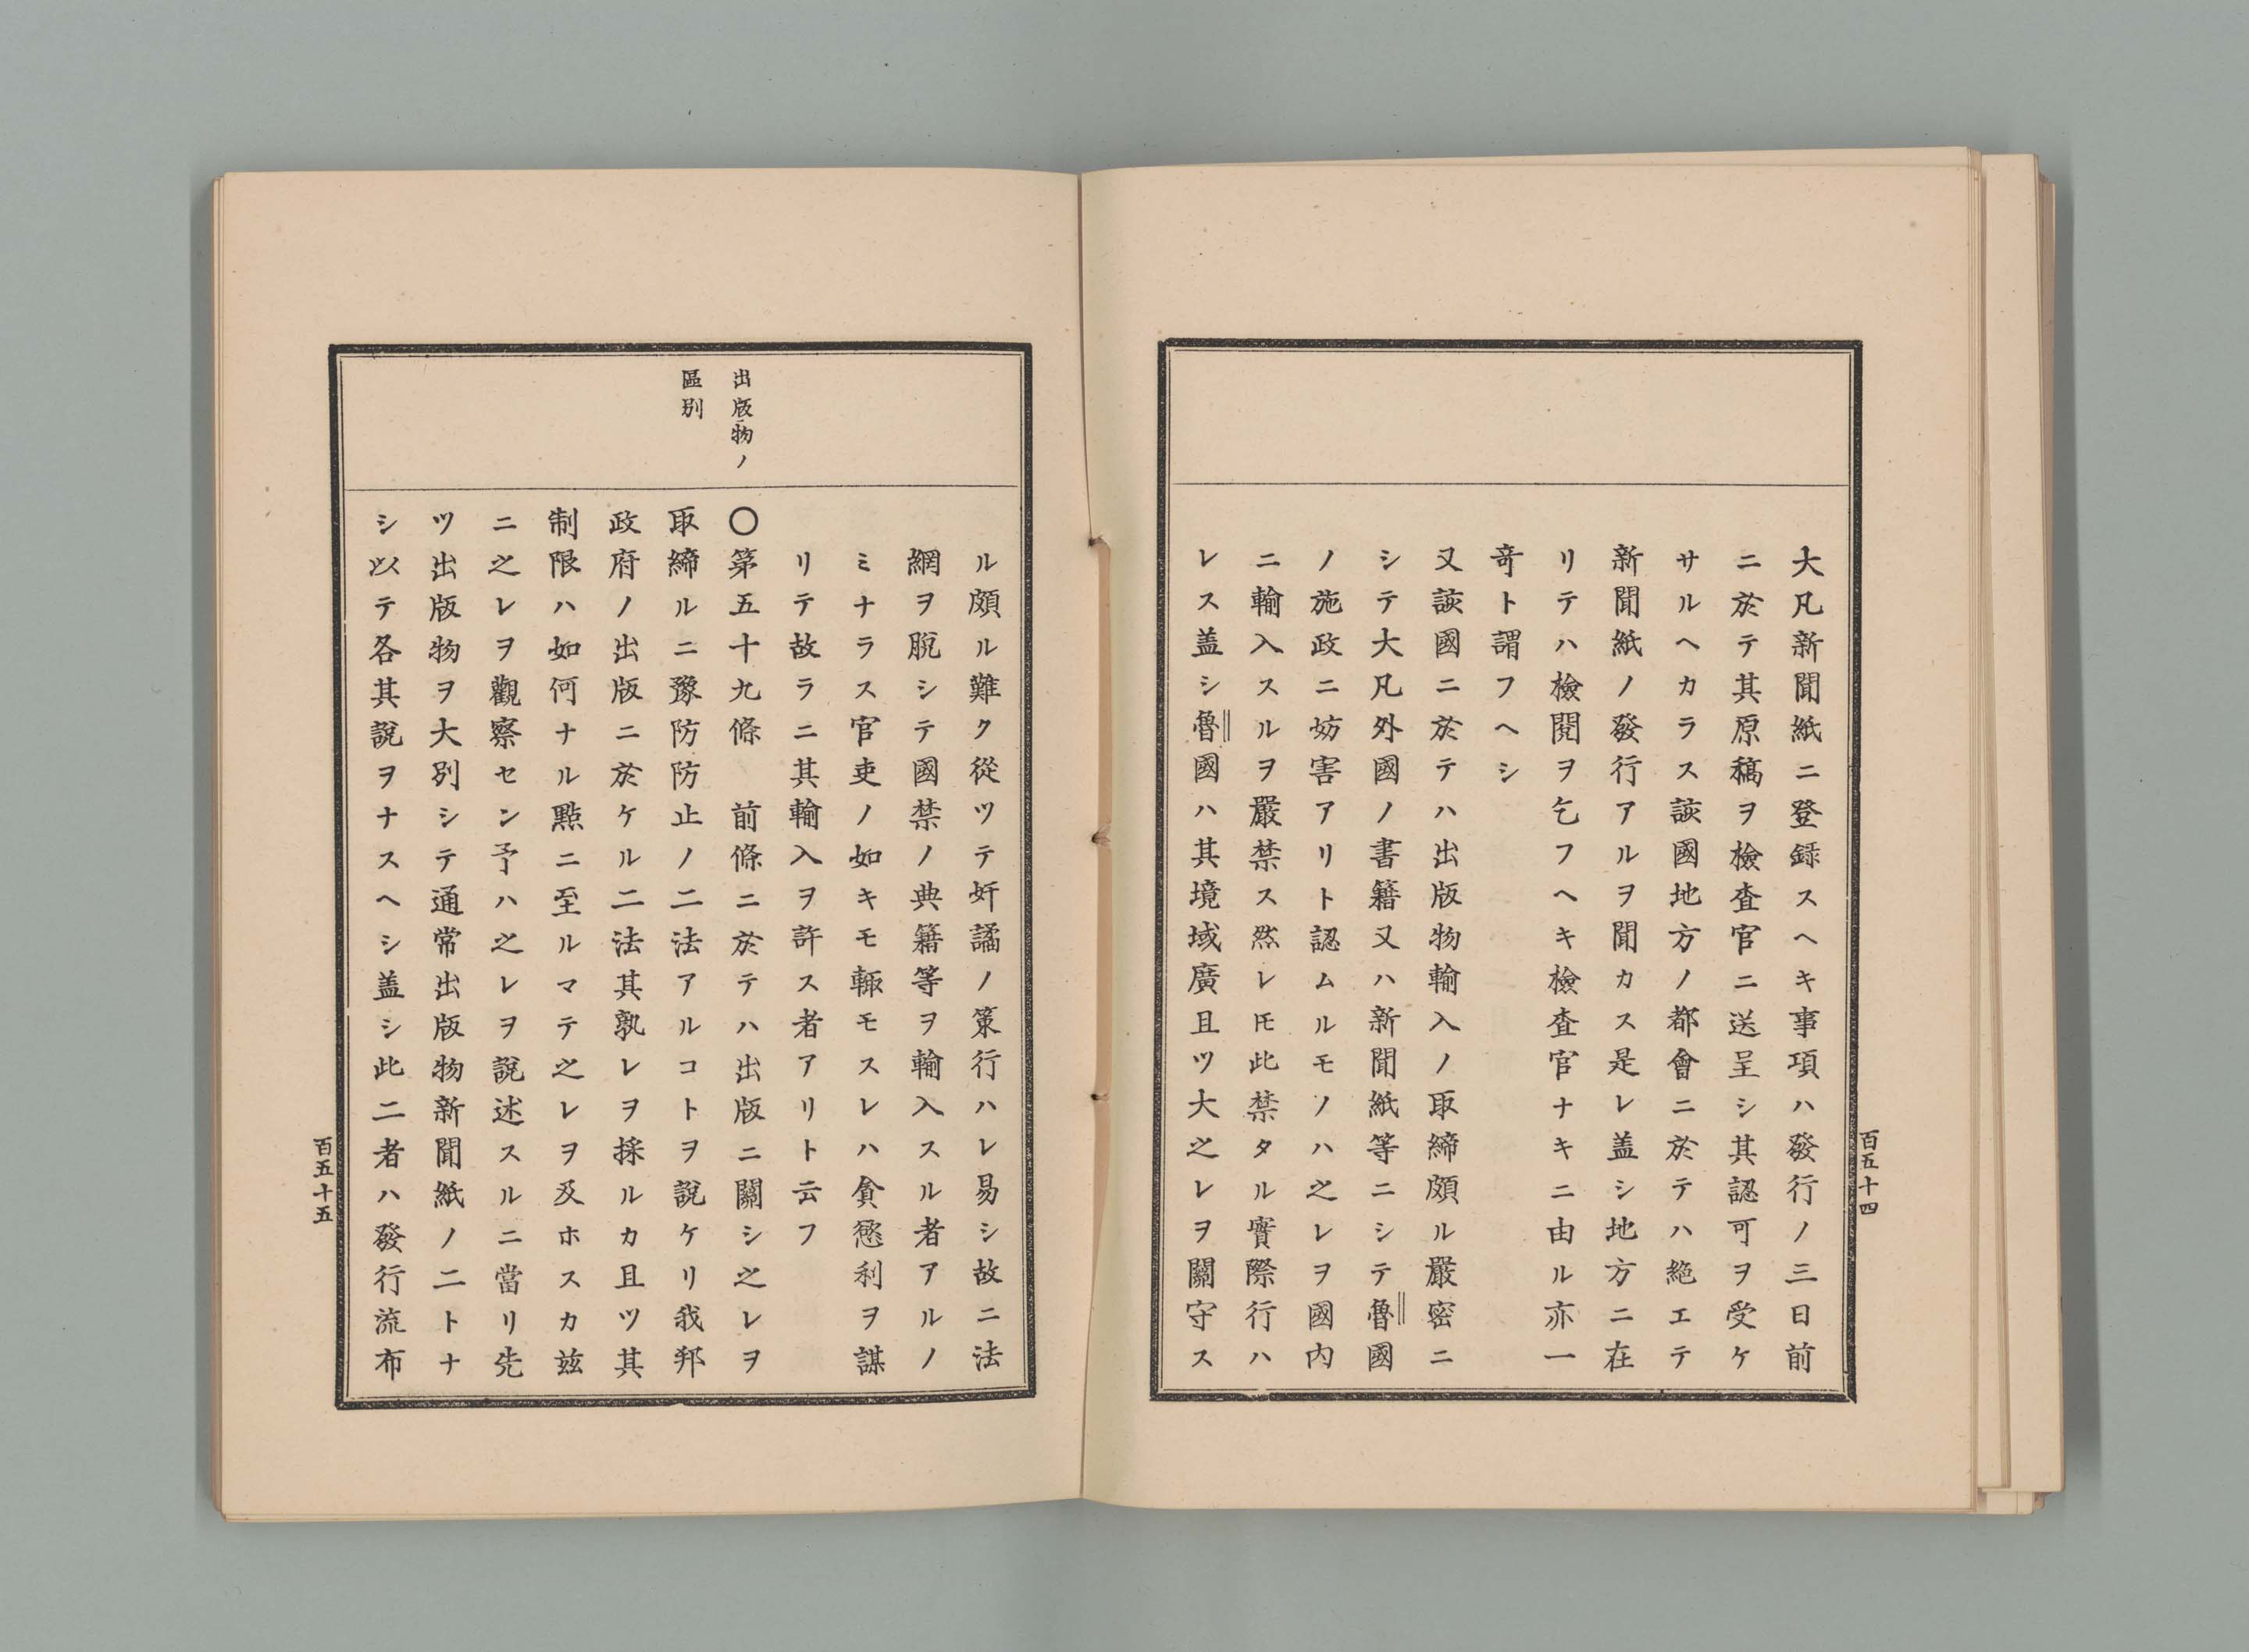 大凡新聞紙ニ登録スヘキ事項ハ發行ノ三日前
ニ於テ其原稿ヲ檢査官ニ送呈シ其認可ヲ受ケ
サルヘカラス該國地方ノ都會ニ於テハ絶エテ
新聞紙ノ發行アルヲ聞カス是レ盖シ地方ニ在
リテハ檢閲ヲ乞フヘキ檢査官ナキニ由ル亦一
竒ト謂フヘシ
又該國ニ於テハ出版物輸入ノ取締頗ル嚴密ニ
シテ大凡外國ノ書籍又ハ新聞紙等ニシテ魯國
ノ施政ニ妨害アリト認ムルモノハ之レヲ國内
ニ輸入スルヲ嚴禁ス然レ𪜈此禁タル實際行ハ
レス盖シ魯國ハ其境域廣且ツ大之レヲ關守ス
百五十四
ル頗ル難ク從ツテ奸譎ノ策行ハレ易シ故ニ法
網ヲ脫シテ國禁ノ典籍等ヲ輸入スル者アルノ
ミナラス官吏ノ如キモ輙モスレハ貪慾利ヲ謀
リテ故ラニ其輸入ヲ許ス者アリト云フ
出版物ノ
區別
〇第五十九條 前條ニ於テハ出版ニ關シ之レヲ
取締ルニ豫防防止ノ二法アルコトヲ說ケリ我邦
政府ノ出版ニ於ケル二法其孰レヲ採ルカ且ツ其
制限ハ如何ナル點ニ至ルマテ之レヲ及ホスカ玆
ニ之レヲ觀察セン予ハ之レヲ說述スルニ當リ先
ツ出版物ヲ大別シテ通常出版物新聞紙ノ二トナ
シ以テ各其說ヲナスヘシ盖シ此二者ハ發行流布
百五十五